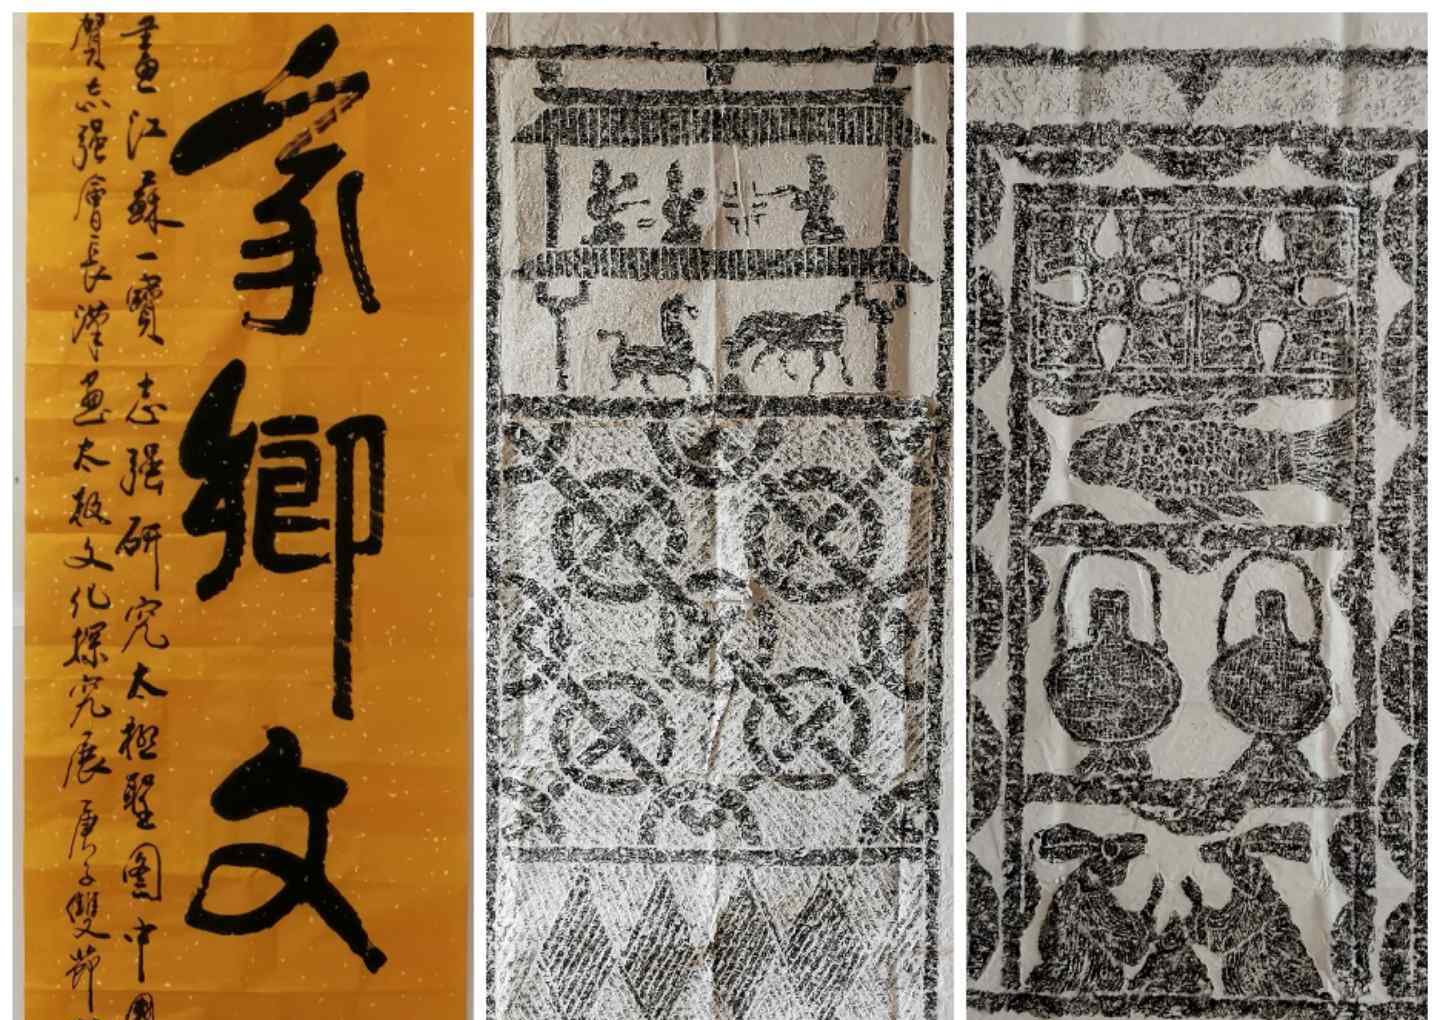 家鄉文
畫江蘇一寶志强研究太極聖圖中國
賀志强會長漢畫太极文化探究展庚子雙節